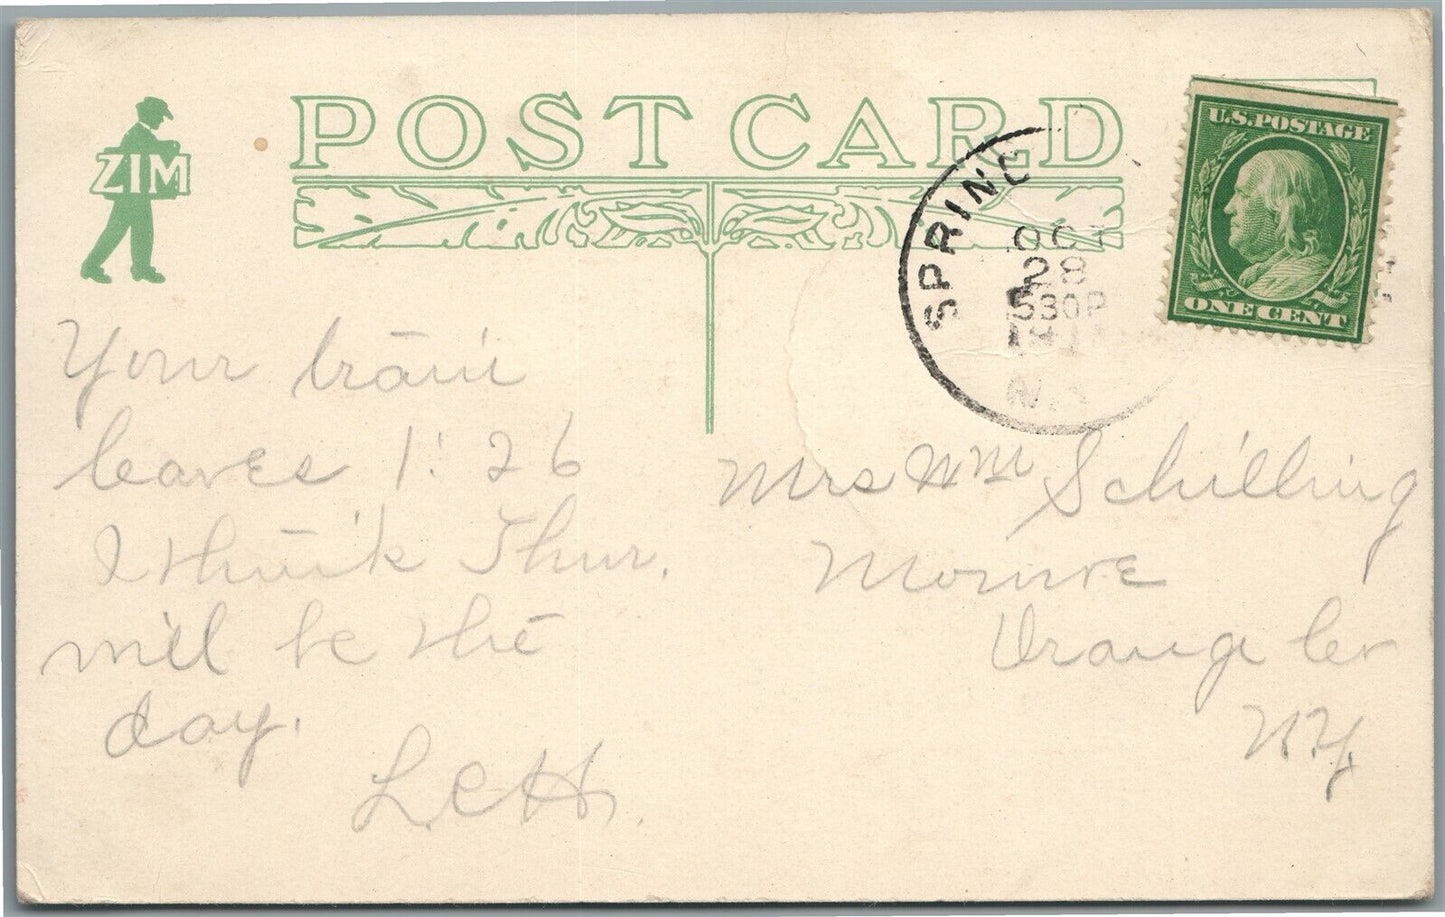 ZIM
POST CARD
U.S. POSTAGE
ONE CENT
SPRING
OCT
28
530P
191
N.Y.
Your train
leaves 1:26
I think Thur.
will be the
day.
L.C.H.
Mrs Wm Schilling
Monroe
Orange Co
N.Y.